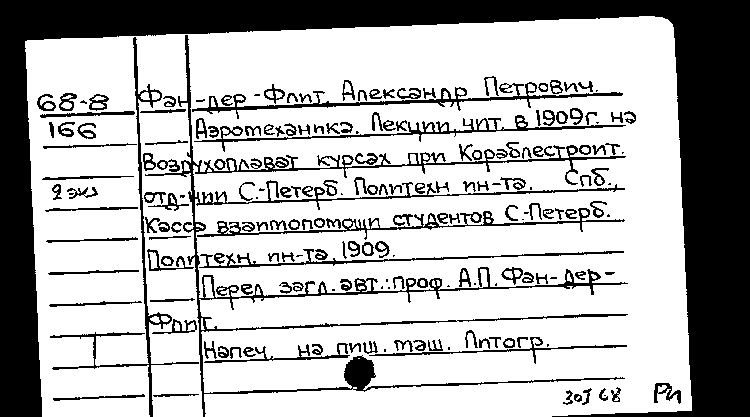 68-8 Фан-дер-Флит, Александр Петрович.
166 Аэротеханика. Лекции, чит. в 1909г. на
Воздухоплават курсах при Кораблестроит.
2 экз отд-нии С.-Петерб. Политехн ин-та. Спб.,
Касса взаимопомощи студентов С.-Петерб.
Политехн. ин-та, 1909.
Перед загл. авт.: проф. А.П. Фан-дер-
Флит.
Напеч. на пиш. маш. Литогр.
68 РИ